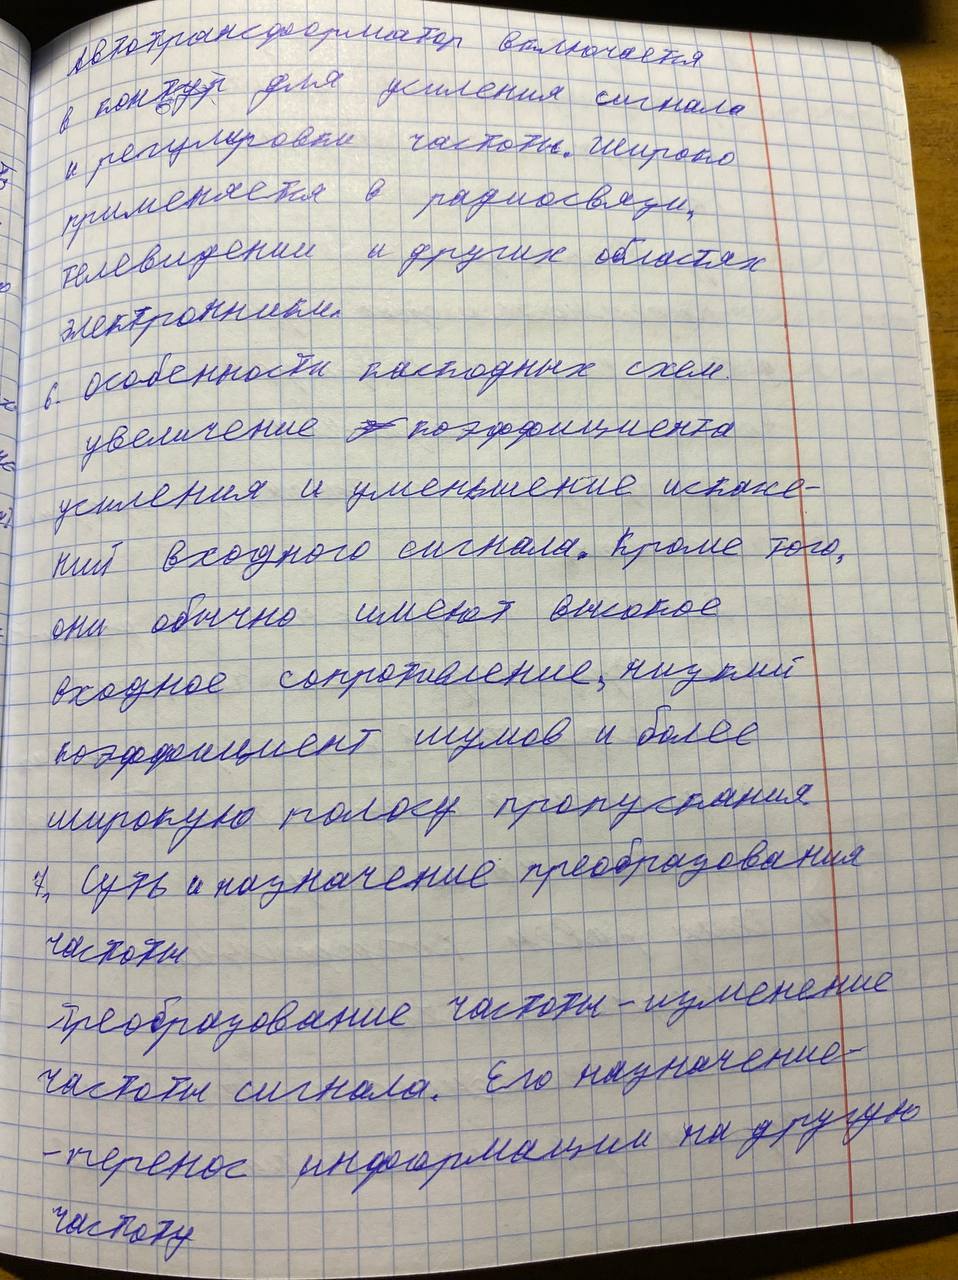 Автотрансформатор включается
в контур для усиления сигнала
и регулировки частоты. Широко
применяется в радиосвязи,
телевидении и других областях
электронники.
6. Особенности каскодных схем.
увеличение коэффициента
усиления и уменьшение искаже-
ний входного сигнала. Кроме того,
они обычно имеют высокое
входное сопротивление, низкий
коэффициент шумов и более
широкую полосу пропускания
7. Суть и назначение преобразования
частоты
Преобразование частоты - изменение
частоты сигнала. Его назначение-
-перенос информации на другую
частоту